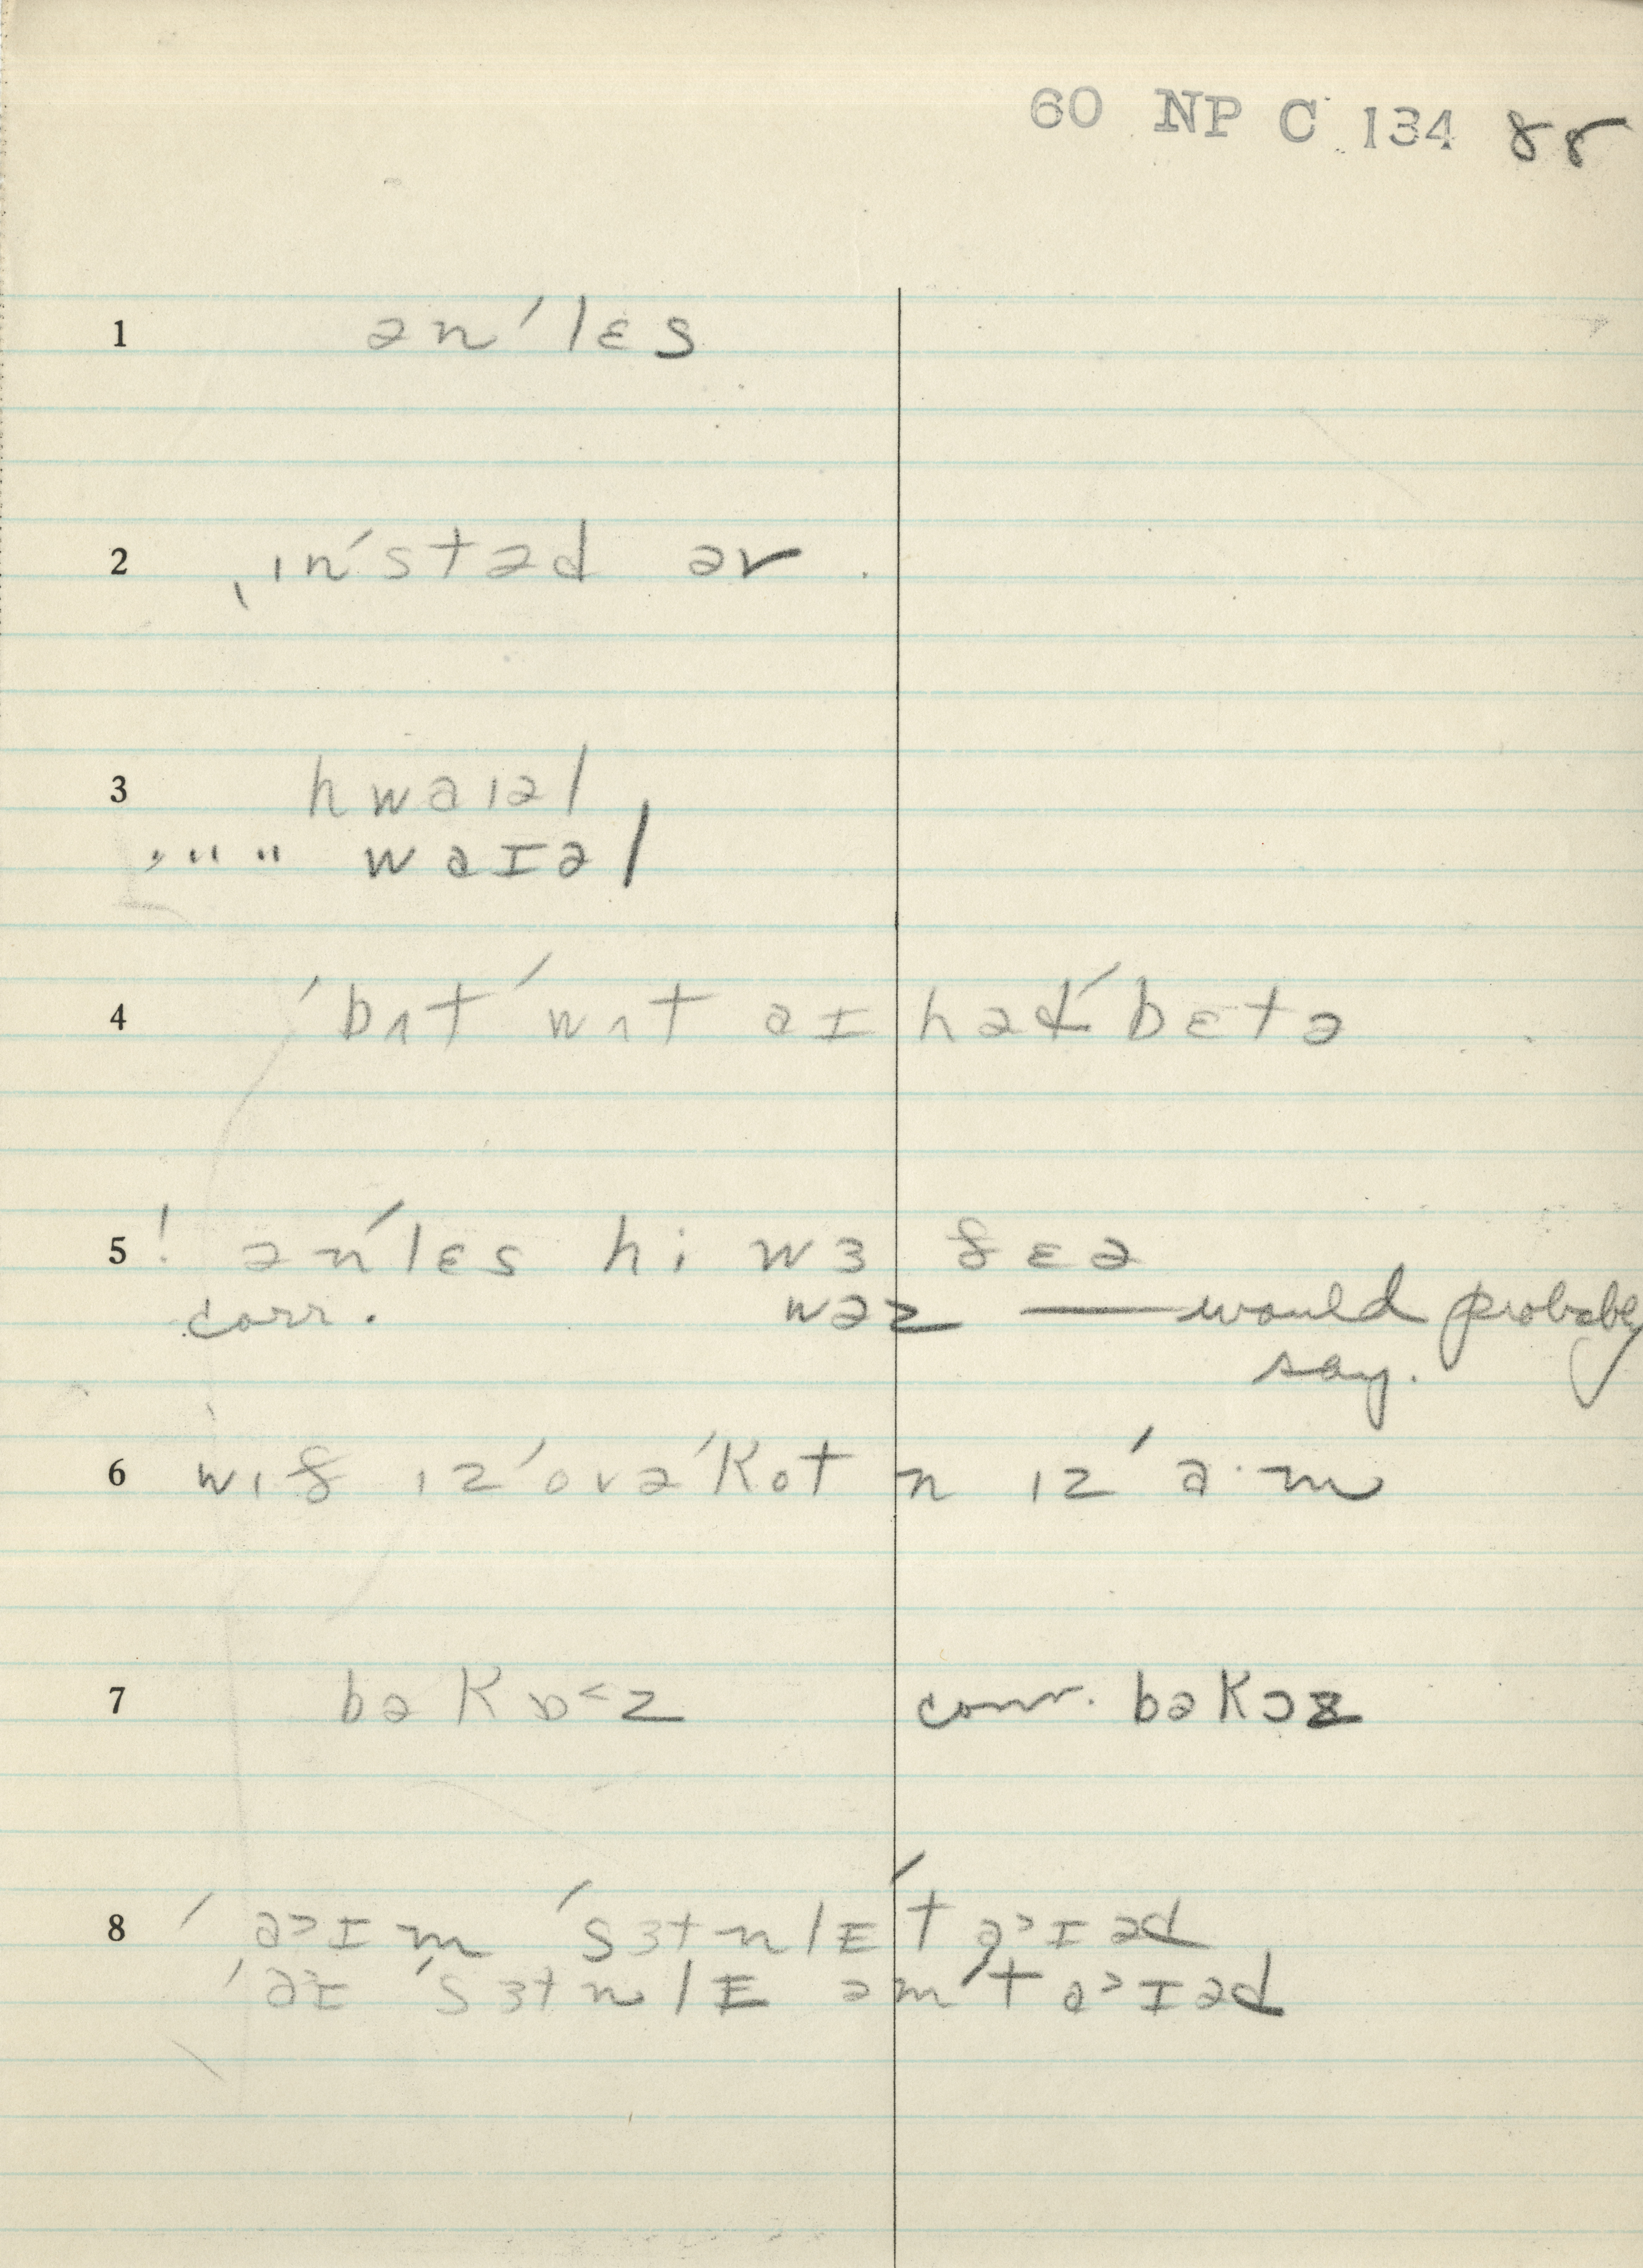 60 NP C 134 88
1 ənˈlɛs
2 ˌɪnˈstəd əv
3 hwaɪəl
" " " waɪəl
4 ˈbʌt ˈwʌt aɪ hədˈbɛtə
5 ! ənˈlɛs hi wɜ fɛə
corr. wəz — would probably
say.
6 wɪf ɪzˈovəˈkot n ɪzˈa·m
7 bəkɒ˂z corr. bəkɔz
8 ˈa˃ɪm ˈsɜtnlɪˈta˃ɪəd
ˈaɪ ˈsɜtnlɪ əmˈta˃ɪəd